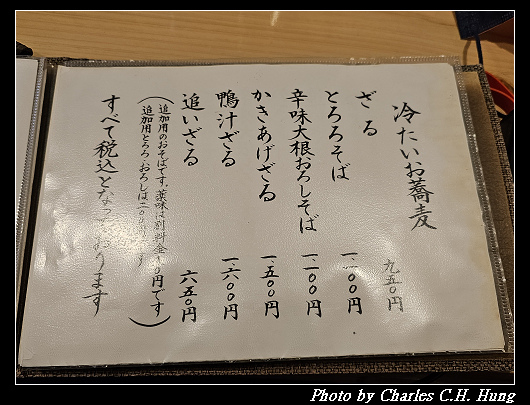 冷たいお蕎麦
ざる 九五〇円
とろろそば
辛味大根おろしそば 一、一〇〇円
かきあげざる 一、五〇〇円
鴨汁ざる 一、六〇〇円
追いざる 六五〇円
（追加用のおそばです。薬味は別料金 円です
追加用とろろ・おろしは ）
すべて税込となっております
Photo by Charles C.H. Hung